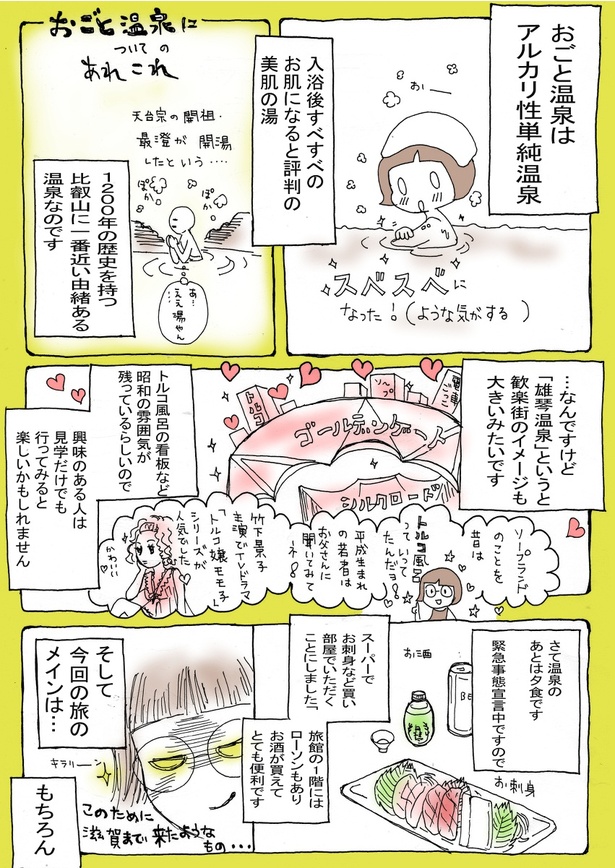 おごと温泉は
アルカリ性単純温泉
入浴後すべすべの
お肌になると評判の
美肌の湯
おー
スベスベに
なった!(ような気がする)
おごと温泉に
ついての
あれこれ
天台宗の開祖・
最澄が開湯
したという・・・・
ぽか
ぽか
ぽか
あ…
ええ湯やん
1200年の歴史を持つ
比叡山に一番近い由緒ある
温泉なのです
…なんですけど
「雄琴温泉」というと
歓楽街のイメージも
大きいみたいです
トルコ
ソープ
ゴールデンゲート
シルクロード
トルコ風呂の看板など
昭和の雰囲気が
残っているらしいので
興味のある人は
見学だけでも
行ってみると
楽しいかもしれません
ソープランド
のことを
昔は
トルコ風呂
っていって
たんだヨ!
平成生まれ
の若者は
お父さんに
聞いてみて
ネ!
竹下景子
主演でTVドラマ
「トルコ嬢モモ子」
シリーズが
人気でした
かわいい
さて温泉の
あとは夕食です
緊急事態宣言中ですので
スーパーで
お刺身など買い
部屋でいただく
ことにしました
お酒
BE
お刺身
旅館の1階には
ローソンもあり
お酒が買えて
とても便利です
そして
今回の旅の
メインは…
キラリーン
このために
滋賀まで来たような
もの・・・
もちろん